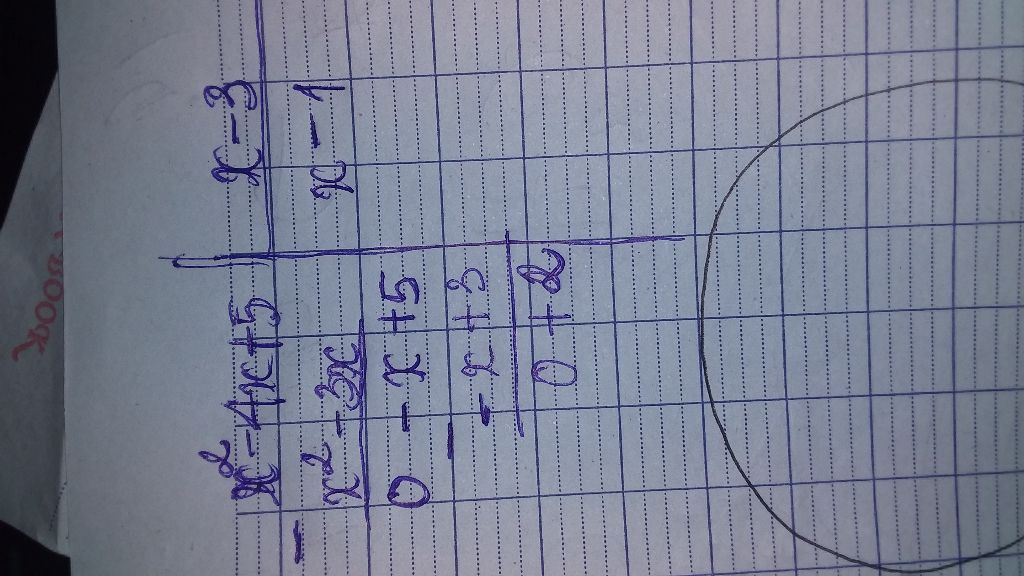 x² - 4x + 5 | x - 3
- x² - 3x | x - 1
0 - x + 5
- - x + 3
0 + 2